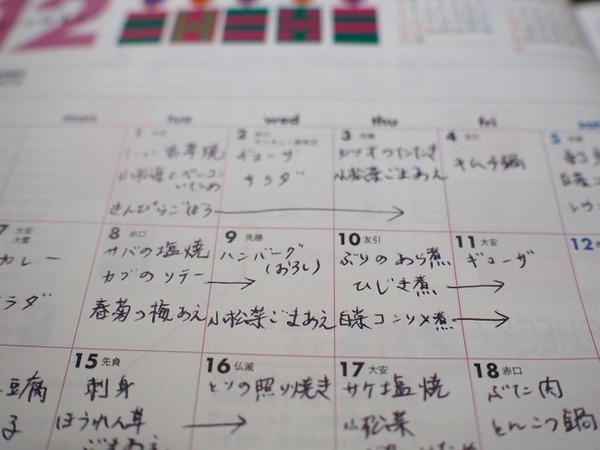 12
mon tue wed thu fri
1
生姜焼
小松菜とベーコン
いため
きんぴらごぼう
2
ギョーザ
サラダ
3
カツオのたたき
小松菜ごまあえ
4
キムチ鍋
5
7 大安
大雪
カレー
8 赤口
サバの塩焼
カブのソテー
春菊の梅あえ
9 先勝
ハンバーグ
(おろし)
小松菜ごまあえ
10 友引
ぶりのあら煮
ひじき煮
白菜コンソメ煮
11 大安
ギョーザ
12
豆腐
15 先負
刺身
ほうれん草
ごまあえ
16 仏滅
とりの照り焼き
17 大安
サケ塩焼
小松菜
18 赤口
ぶた肉
とんこつ鍋